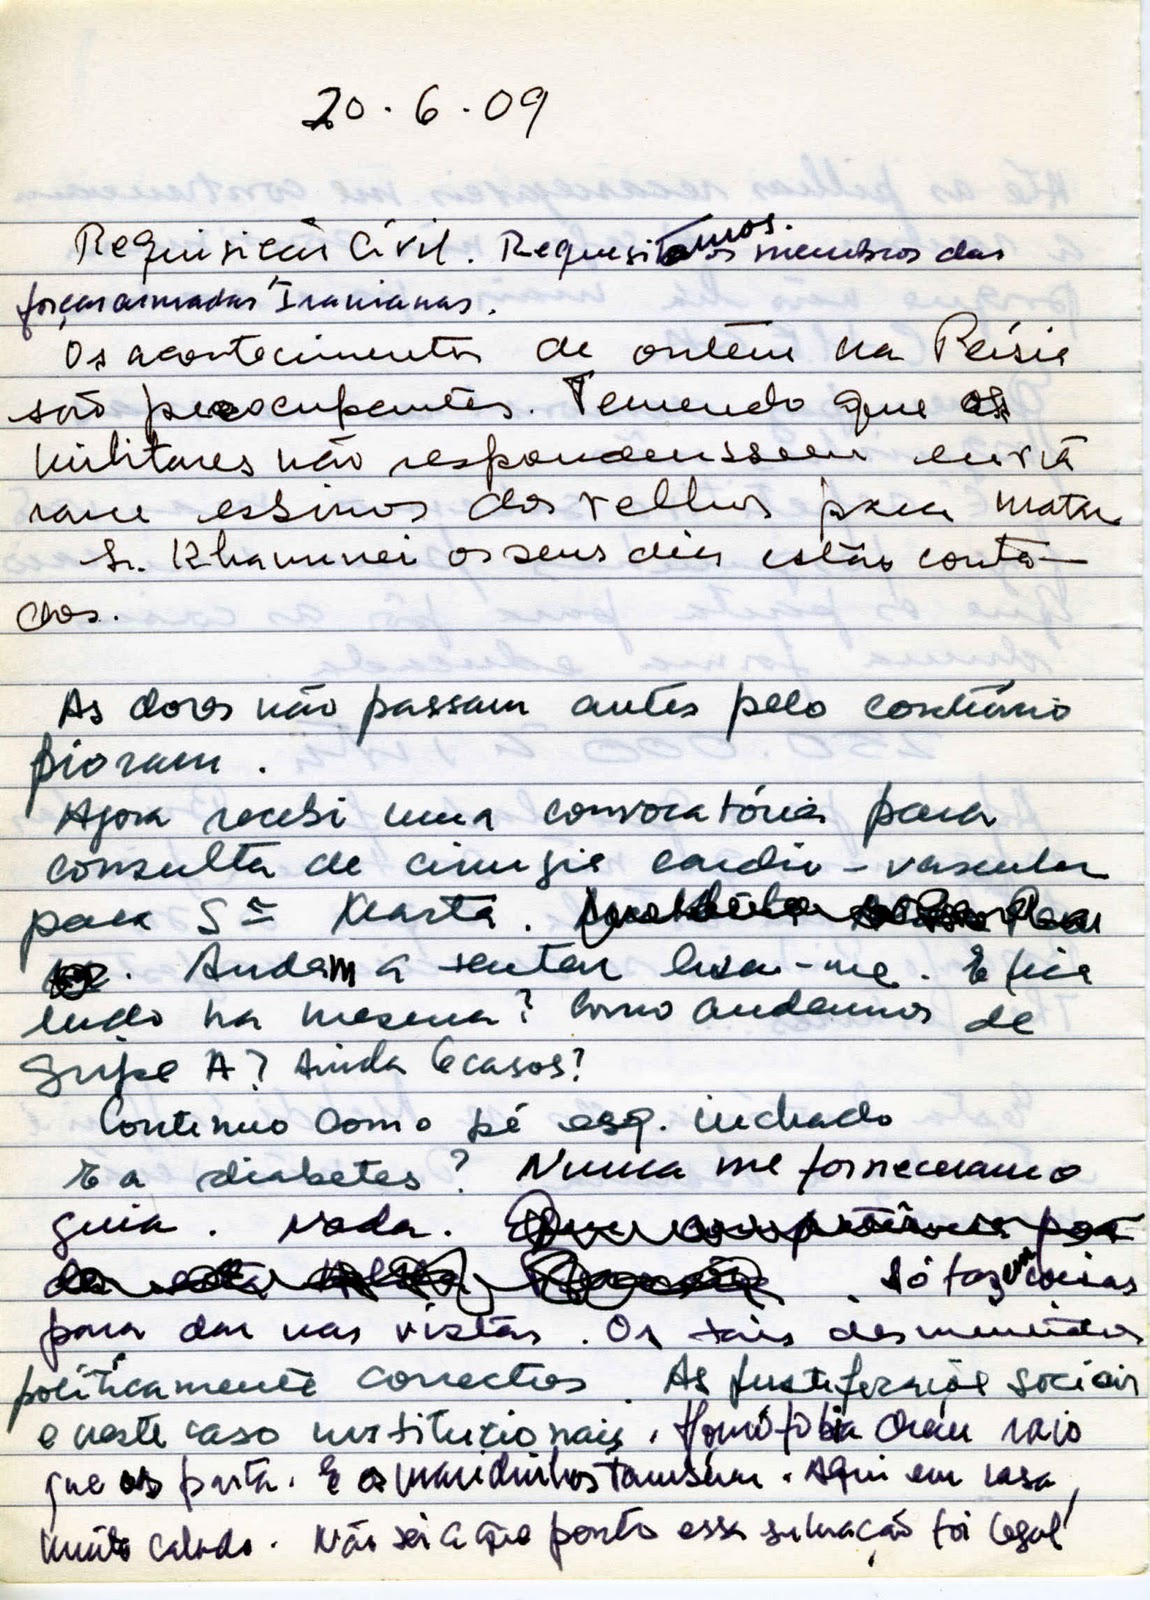 20.6.09
Requisição Civil. Requisitamos. os membros das
forças armadas Iranianas.
Os acontecimentos de ontem na Pérsia
são preocupantes. Temendo que os
militares não respondenssem envia
ram dos velhos para matar
Sr. Khamnei os seus dias estão conta-
dos.
As dores não passam antes pelo contrário
pioram.
Agora recebi uma convocatória para
consulta de cirurgia cardio-vascular
para Stª Marta.
Andam a tentar lixar-me. E fica
tudo na mesma? Como andamos de
Gripe A? Ainda 6 casos?
Continuo com o pé esq. inchado
E a diabetes? Nunca me forneceram o
guia. Nada.
Só fazem coisas
para dar nas vistas. Os tais desmiúdos
politicamente correctos As justificações sociais
e neste caso institucionais. Homofobia Oram raio
que os parta. E os maridinhos também. Aqui em casa
muito calado. Não sei a que ponto essa situação foi legal!